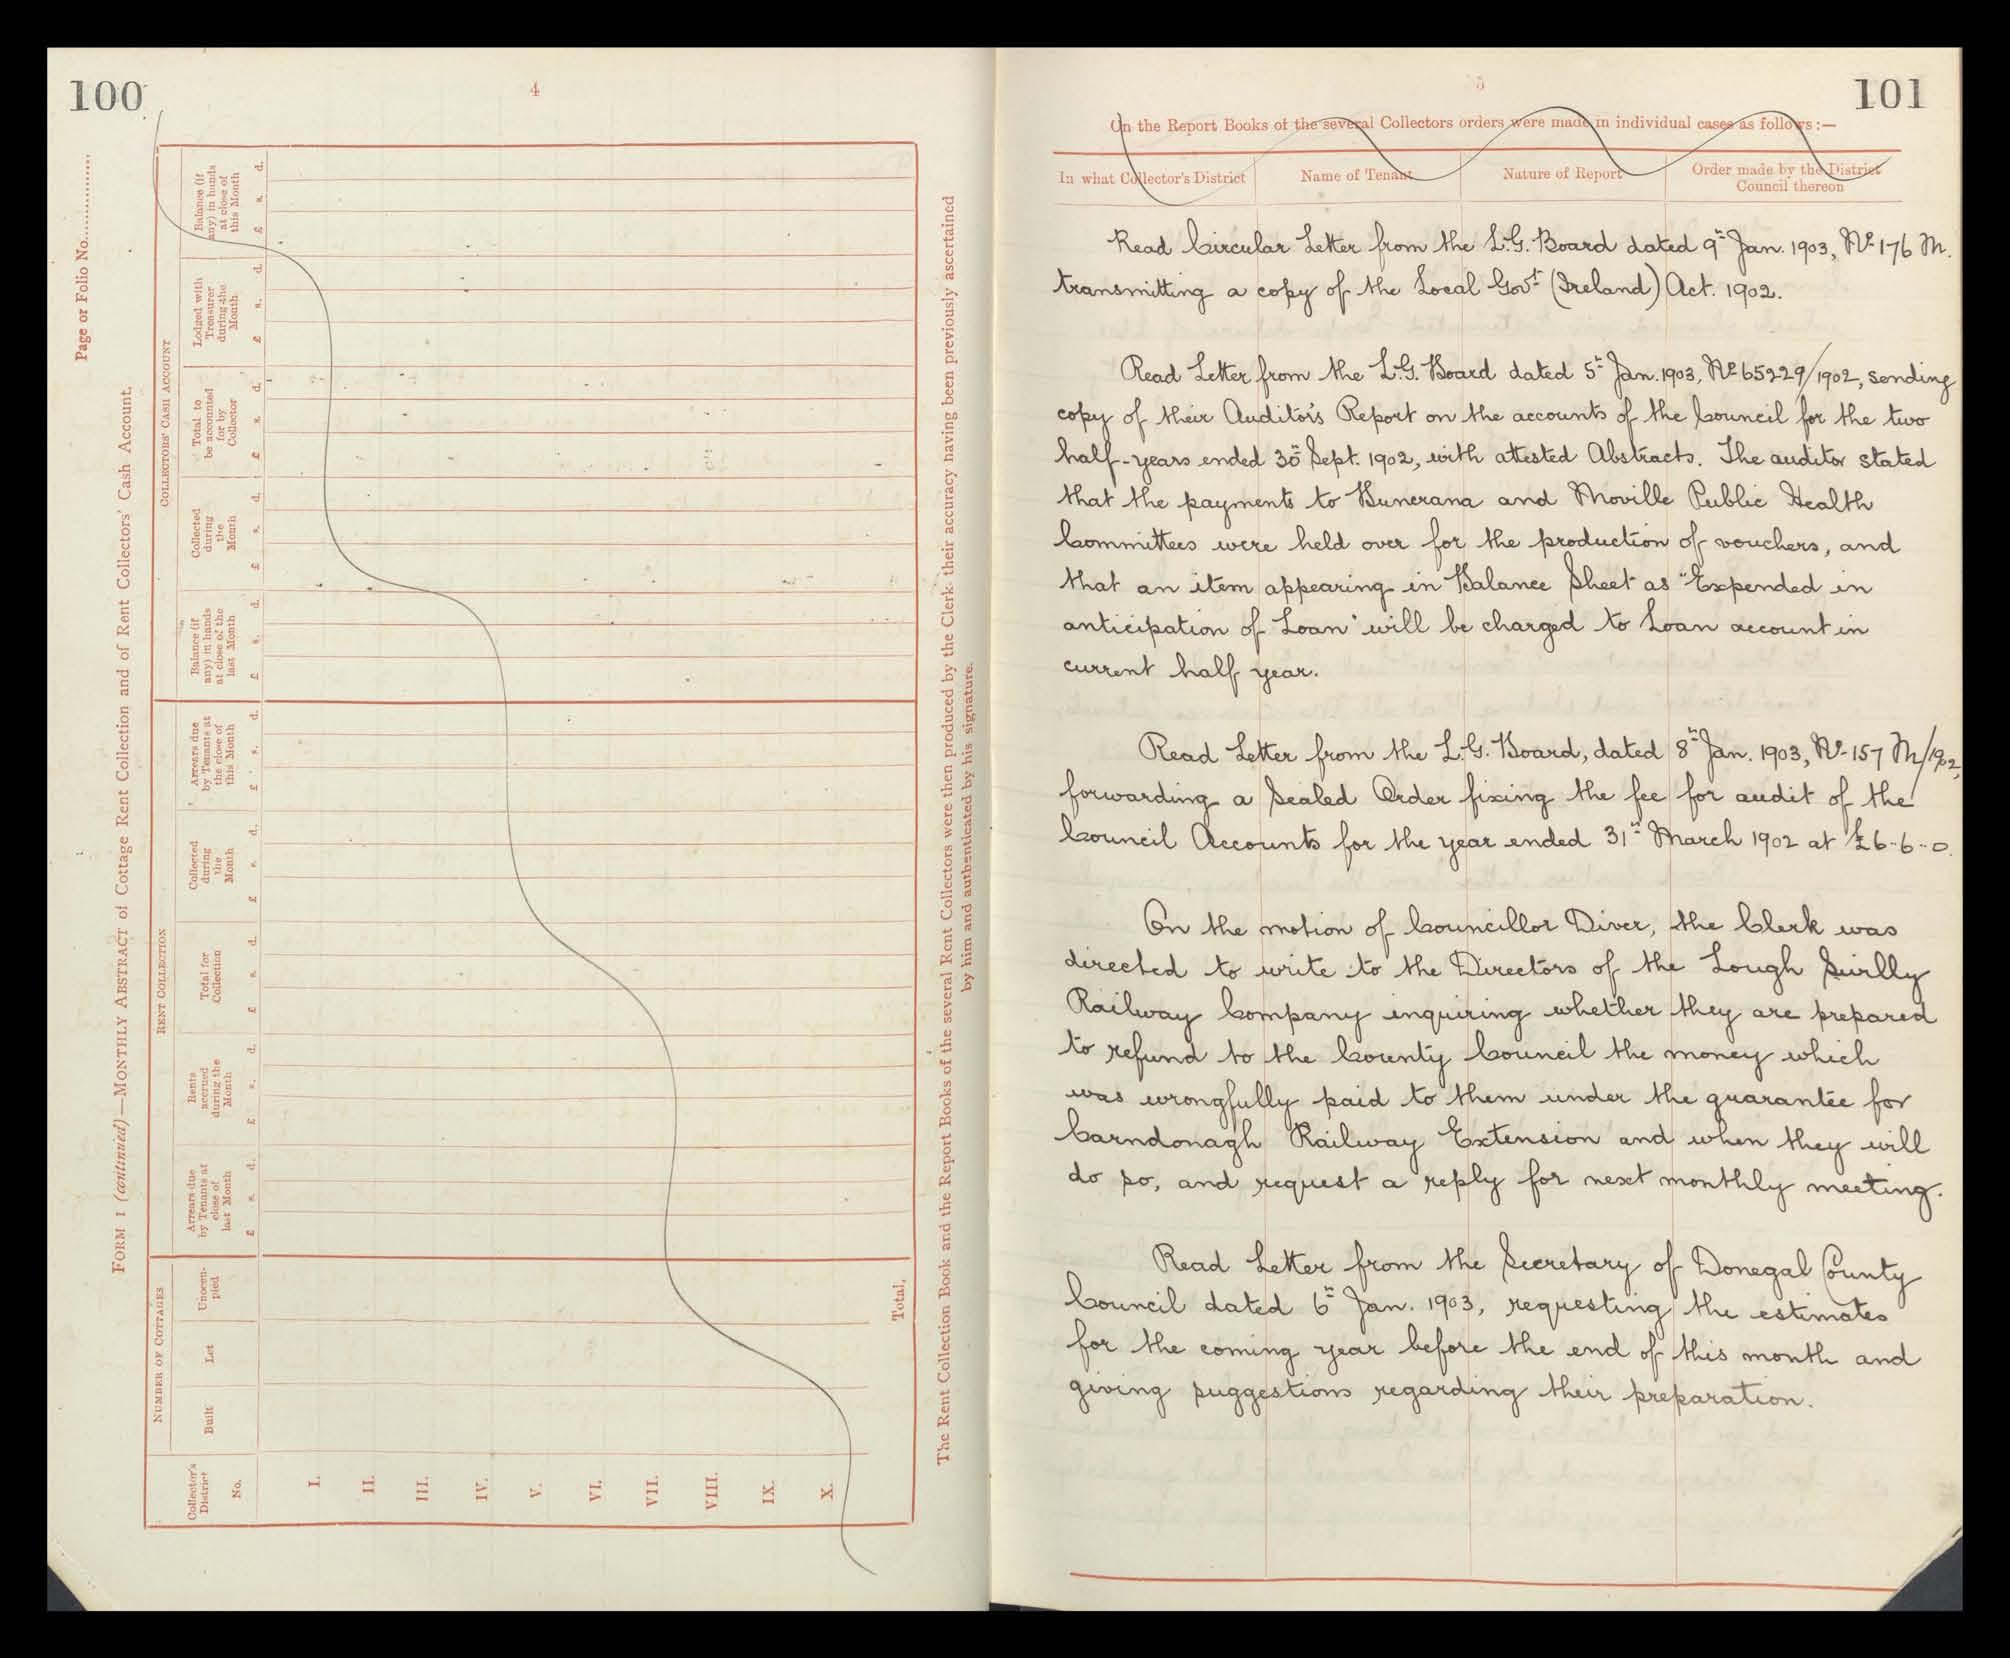 100
4
Page or Folio No...............
FORM 1 (continued)—MONTHLY ABSTRACT of Cottage Rent Collection and of Rent Collectors' Cash Account.
NUMBER OF COTTAGES
RENT COLLECTION
COLLECTORS' CASH ACCOUNT
Collector's District No.
Built
Let
Unoccu-pied
Arrears due by Tenants at close of last Month
Rents accrued during the Month
Total for Collection
Collected during the Month
Arrears due by Tenants at the close of this Month
Balance (if any) in hands at close of the last Month
Collected during the Month
Total to be accounted for by Collector
Lodged with Treasurer during the Month
Balance (if any) in hands at close of this Month
£ s. d.
£ s. d.
£ s. d.
£ s. d.
£ s. d.
£ s. d.
£ s. d.
£ s. d.
£ s. d.
£ s. d.
I.
II.
III.
IV.
V.
VI.
VII.
VIII.
IX.
X.
Total,
The Rent Collection Book and the Report Books of the several Rent Collectors were then produced by the Clerk, their accuracy having been previously ascertained
by him and authenticated by his signature.
5
101
On the Report Books of the several Collectors orders were made in individual cases as follows:—
In what Collector's District
Name of Tenant
Nature of Report
Order made by the District
Council thereon
Read Circular Letter from the L.G. Board dated 9th Jan. 1903, No 176 M.
transmitting a copy of the Local Govt (Ireland) Act. 1902.
Read Letter from the L.G. Board dated 5th Jan. 1903, No 65229/1902, sending
copy of their Auditor's Report on the accounts of the Council for the two
half-years ended 30th Sept. 1902, with attested Abstracts. The auditor stated
that the payments to Buncrana and Moville Public Health
Committees were held over for the production of vouchers, and
that an item appearing in Balance Sheet as "Expended in
anticipation of Loan" will be charged to Loan account in
current half year.
Read Letter from the L.G. Board, dated 8th Jan. 1903, No 157 M/1902,
forwarding a Sealed Order fixing the fee for audit of the
Council Accounts for the year ended 31st March 1902 at £6-6-0.
On the motion of Councillor Diver, the Clerk was
directed to write to the Directors of the Lough Swilly
Railway Company inquiring whether they are prepared
to refund to the County Council the money which
was wrongfully paid to them under the guarantee for
Carndonagh Railway Extension and when they will
do so, and request a reply for next monthly meeting.
Read Letter from the Secretary of Donegal County
Council dated 6th Jan. 1903, requesting the estimates
for the coming year before the end of this month and
giving suggestions regarding their preparation.